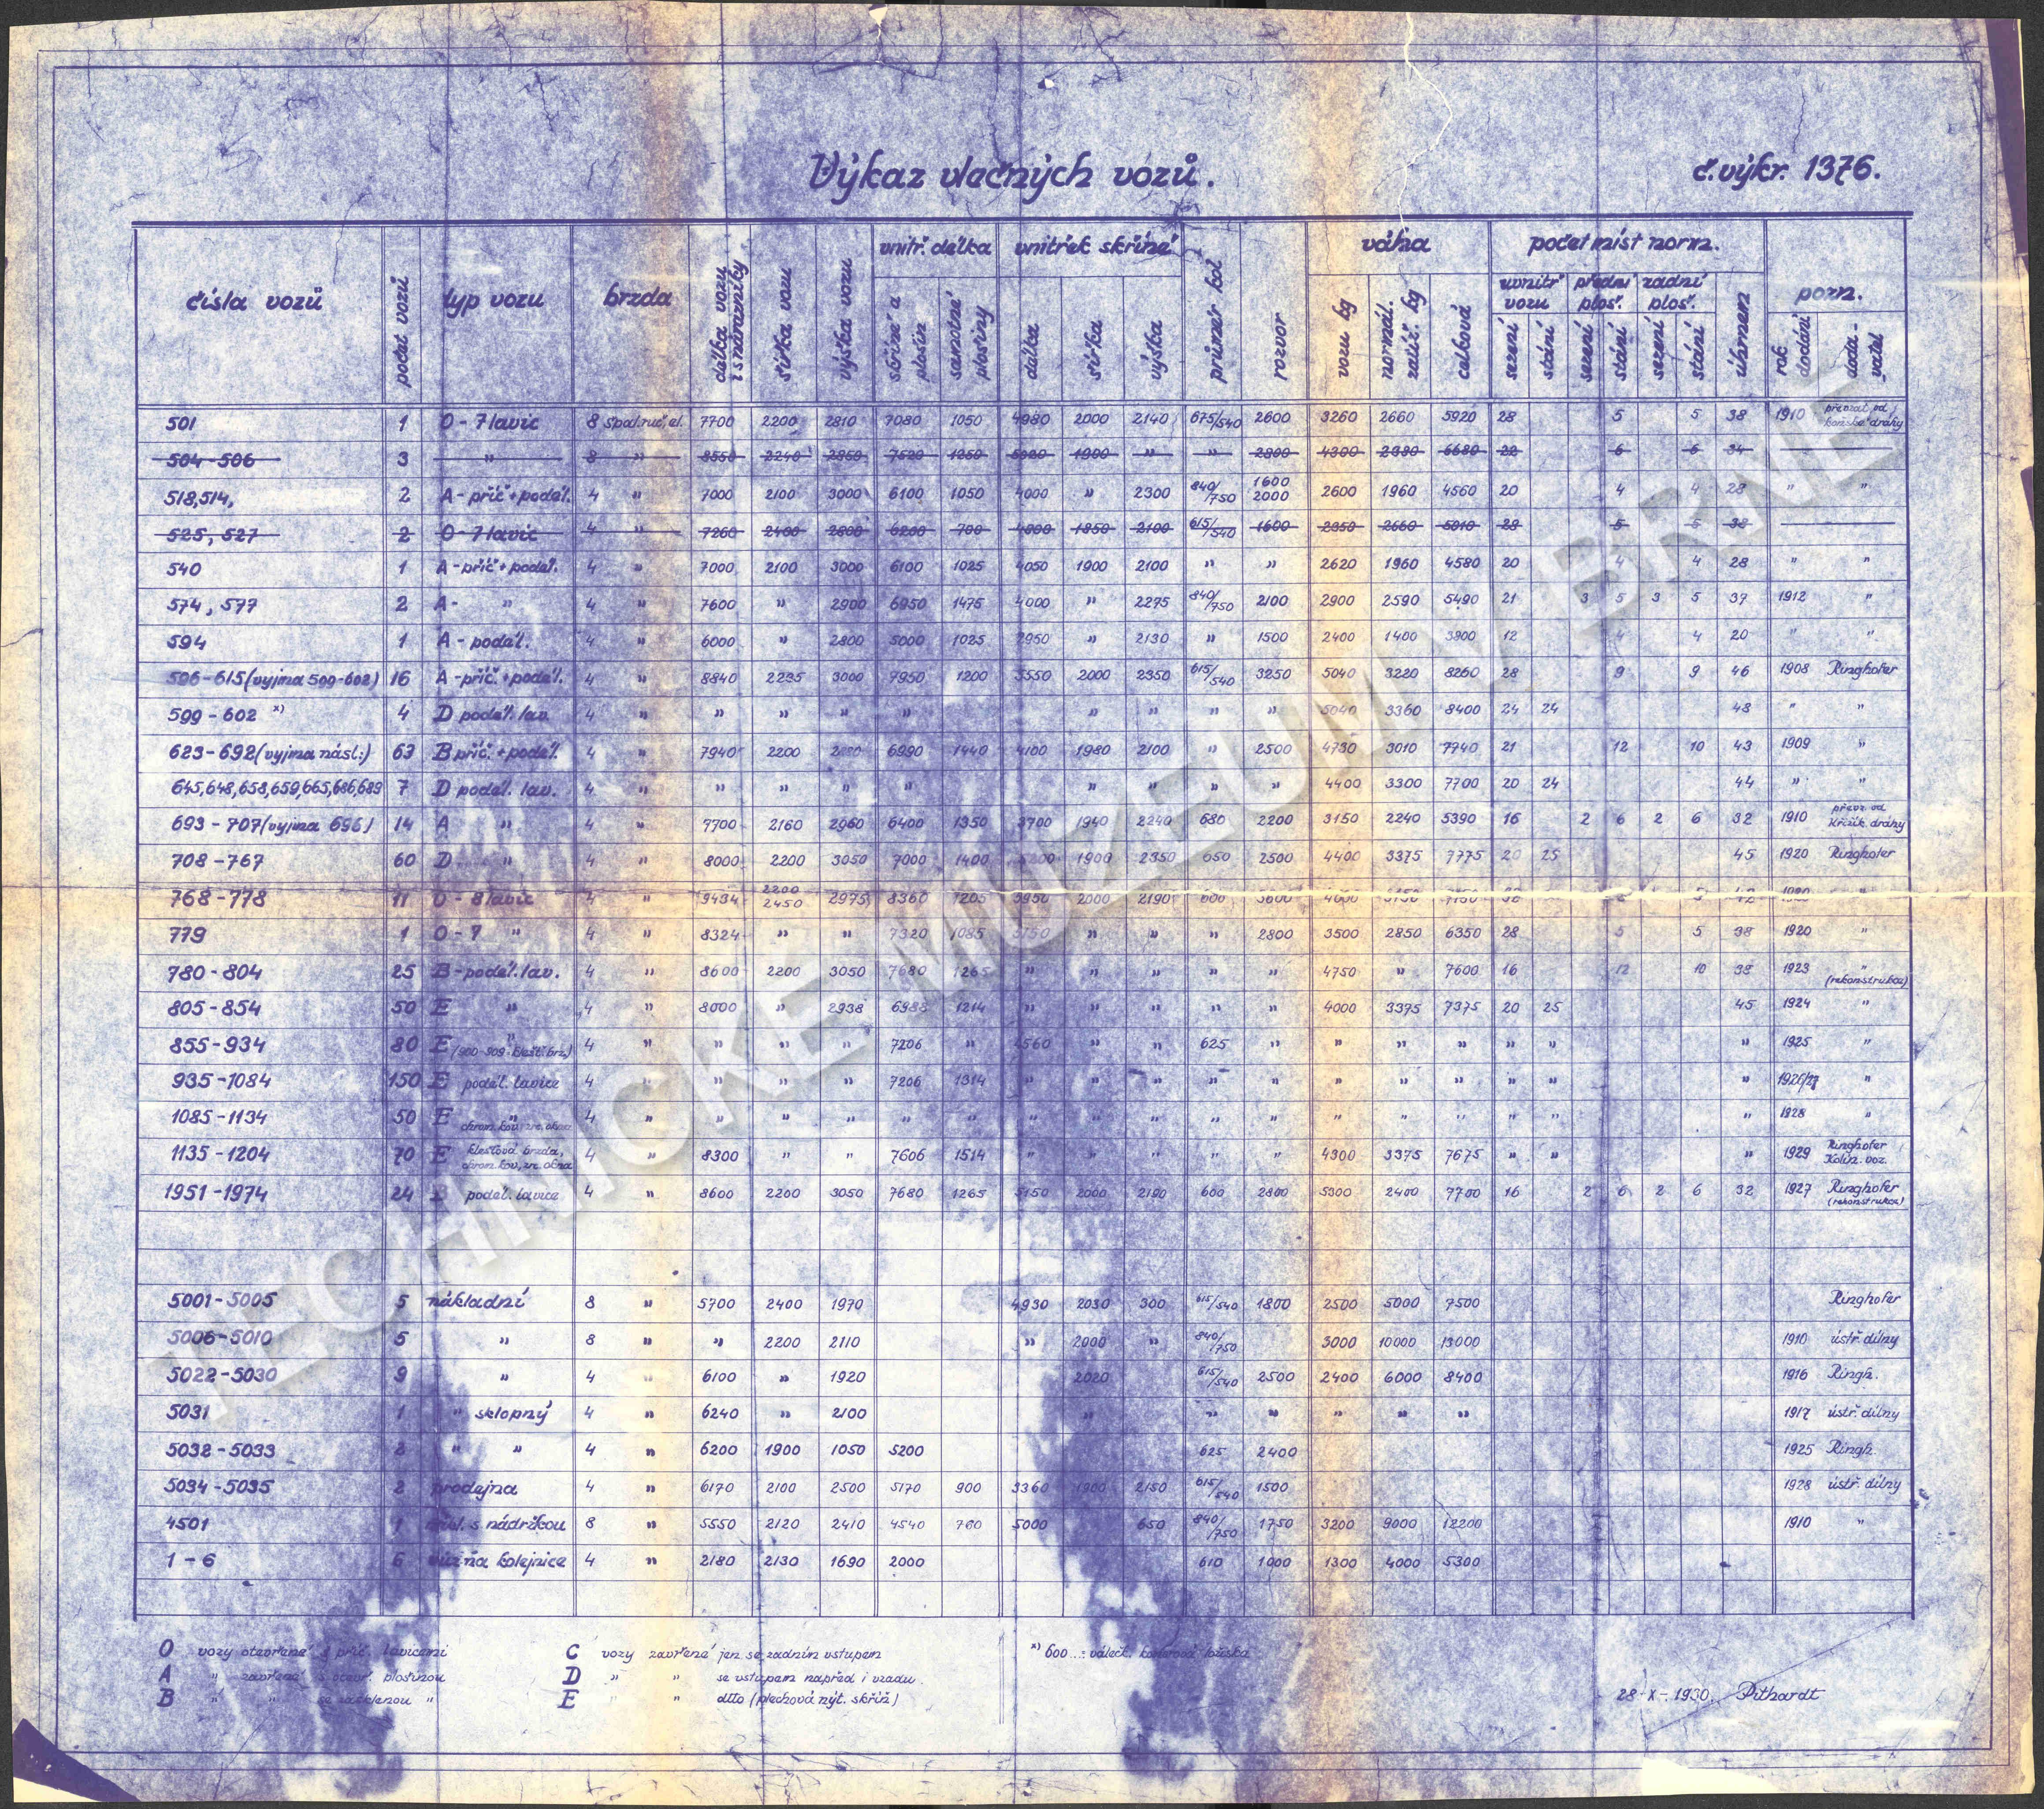 Výkaz vlečných vozů.
č. výkr. 1376.
čísla vozů | počet vozů | typ vozu | brzda | délka vozu i s nárazníky | šířka vozu | výška vozu | vnitř. délka | vnitřek skříně | průměr kol | rozvor | váha | počet míst norm. | pozn.
skříně a plošin | samotné plošiny | délka | šířka | výška | vozu kg | normál. zatíž. kg | celková | uvnitř vozu | přední ploš. | zadní ploš. | úhrnem | rok dodání | doda-vatel
sezení | stání | sezení | stání | sezení | stání
501 1 O - 7 lavic 8 špal. ruč, el. 7700 2200 2810 7080 1050 4980 2000 2140 675/540 2600 3260 2660 5920 28 5 5 38 1910 převzat od koňské dráhy
504-506 3 " 8 " 8550 2240 2850 7520 1250 5020 1900 " " 2800 4300 2380 6680 22 6 6 34
518,514, 2 A - příč + podél. 4 " 7000 2100 3000 6100 1050 4000 " 2300 840/750 1600 2000 2600 1960 4560 20 4 4 28 " "
525, 527 2 O - 7 lavic 4 " 7260 2400 2800 6200 700 4800 1850 2100 615/540 1600 2350 2660 5010 28 5 5 38
540 1 A - příč + podél. 4 " 7000 2100 3000 6100 1025 4050 1900 2100 " " 2620 1960 4580 20 4 4 28 " "
574, 577 2 A - " 4 " 7600 " 2900 6950 1475 4000 " 2275 840/750 2100 2900 2590 5490 21 3 5 3 5 37 1912 "
594 1 A - podél. 4 " 6000 " 2800 5000 1025 2950 " 2130 " 1500 2400 1400 3800 12 4 4 20 " "
596-615 (vyjma 599-602) 16 A - příč. + podél. 4 " 8840 2235 3000 7950 1200 5550 2000 2350 615/540 3250 5040 3220 8260 28 9 9 46 1908 Ringhofer
599 - 602 x) 4 D podél. lav. 4 " " " " " " " " " 5040 3360 8400 24 24 48 " "
623-692 (vyjma násl:) 63 B příč. + podél. 4 " 7940 2200 6990 1440 4100 1980 2100 " 2500 4730 3010 7740 21 12 10 43 1909 "
645,648,658,659,665,686,689 7 D podél. lav. 4 " " " " " " " " " 4400 3300 7700 20 24 44 " "
693 - 707 (vyjma 696) 14 A " 4 " 7700 2160 2960 6400 1350 3700 1940 2240 680 2200 3150 2240 5390 16 2 6 2 6 32 1910 převz. od Křižík. dráhy
708 - 767 60 D " 4 " 8000 2200 3050 7000 1400 1900 2350 650 2500 4400 3375 7775 20 25 45 1920 Ringhofer
768-778 11 O - 8 lavic 4 " 9434 2200 2450 2975 8360 1205 5950 2000 2190 600 3600 32 5 42 1920 "
779 1 O - 7 " 4 " 8324 " " 7320 1085 5150 " " " 2800 3500 2850 6350 28 5 5 38 1920 "
780 - 804 25 B - podél. lav. 4 " 8600 2200 3050 7680 1265 " " " " " 4750 " 7600 16 12 10 38 1923 " (rekonstrukce)
805 - 854 50 E " 4 " 8000 " 2938 6988 1214 " " " " " 4000 3375 7375 20 25 45 1924 "
855 - 934 80 E " (900-909 klešť. brz.) 4 " " " " 7206 " 4560 " " 625 " " " " " " " 1925 "
935-1084 150 E podél. lavice 4 " " " " 7206 1314 " " " " " " " " " " " 1926/27 "
1085-1134 50 E " chrom. kov., zv. okna 4 " " " " " " " " " " " " " " " " " 1928 "
1135 - 1204 70 E klešťová brzda, chrom. kov., zv. okna 4 " 8300 " " 7606 1514 " " " " " 4300 3375 7675 " " " 1929 Ringhofer Kolín. voz.
1951 - 1974 24 B podél. lavice 4 " 8600 2200 3050 7680 1265 5150 2000 2190 600 2800 5300 2400 7700 16 2 6 2 6 32 1927 Ringhofer (rekonstrukce)
5001 - 5005 5 nákladní 8 " 5700 2400 1970 4930 2030 300 615/540 1800 2500 5000 7500 Ringhofer
5006-5010 5 " 8 " " 2200 2110 " 2000 " 840/750 3000 10000 13000 1910 ústř. dílny
5022 - 5030 9 " 4 " 6100 " 1920 2020 615/540 2500 2400 6000 8400 1916 Ringh.
5031 1 " sklopný 4 " 6240 " 2100 " " " " " " 1917 ústř. dílny
5032 - 5033 2 " " 4 " 6200 1900 1050 5200 625 2400 1925 Ringh.
5034 - 5035 2 prodejna 4 " 6170 2100 2500 5170 900 3360 1900 2150 615/540 1500 1928 ústř. dílny
4501 1 s nádržkou 8 " 5550 2120 2410 4540 760 5000 650 840/750 1750 3200 9000 12200 1910 "
1 - 6 6 na kolejnice 4 " 2180 2130 1690 2000 610 1000 1300 4000 5300
O vozy otevřené s příč. lavicemi
A " zavřené s otevř. plošinou
B " " se zasklenou "
C vozy zavřené jen se zadním vstupem
D " " se vstupem napřed i vzadu.
E " " dtto (plechová nýt. skříň)
x) 600 ... váleč. ložiska
28 - X - 1930. Pithardt
TECHNICKÉ MUZEUM V BRNĚ